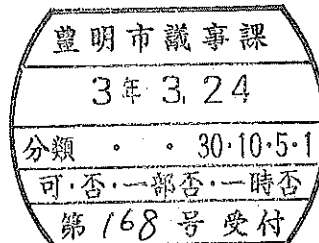 豊明市議事課
3年 3.24
分類 ・ ・ 30・10・5・1
可・否・一部否・一時否
第168号受付